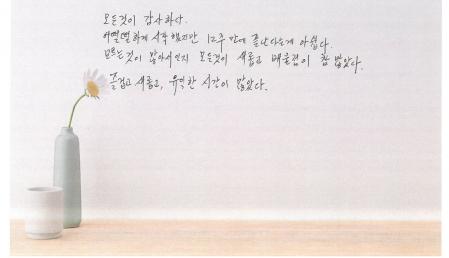 모든것이 감사하다.
어떨떨하게 시작했지만 12주 만에 끝난다는게 아쉽다.
모르는것이 많아서인지 모든것이 새롭고 배울점이 참 많았다.
즐겁고 새롭고, 유익한 시간이 많았다.